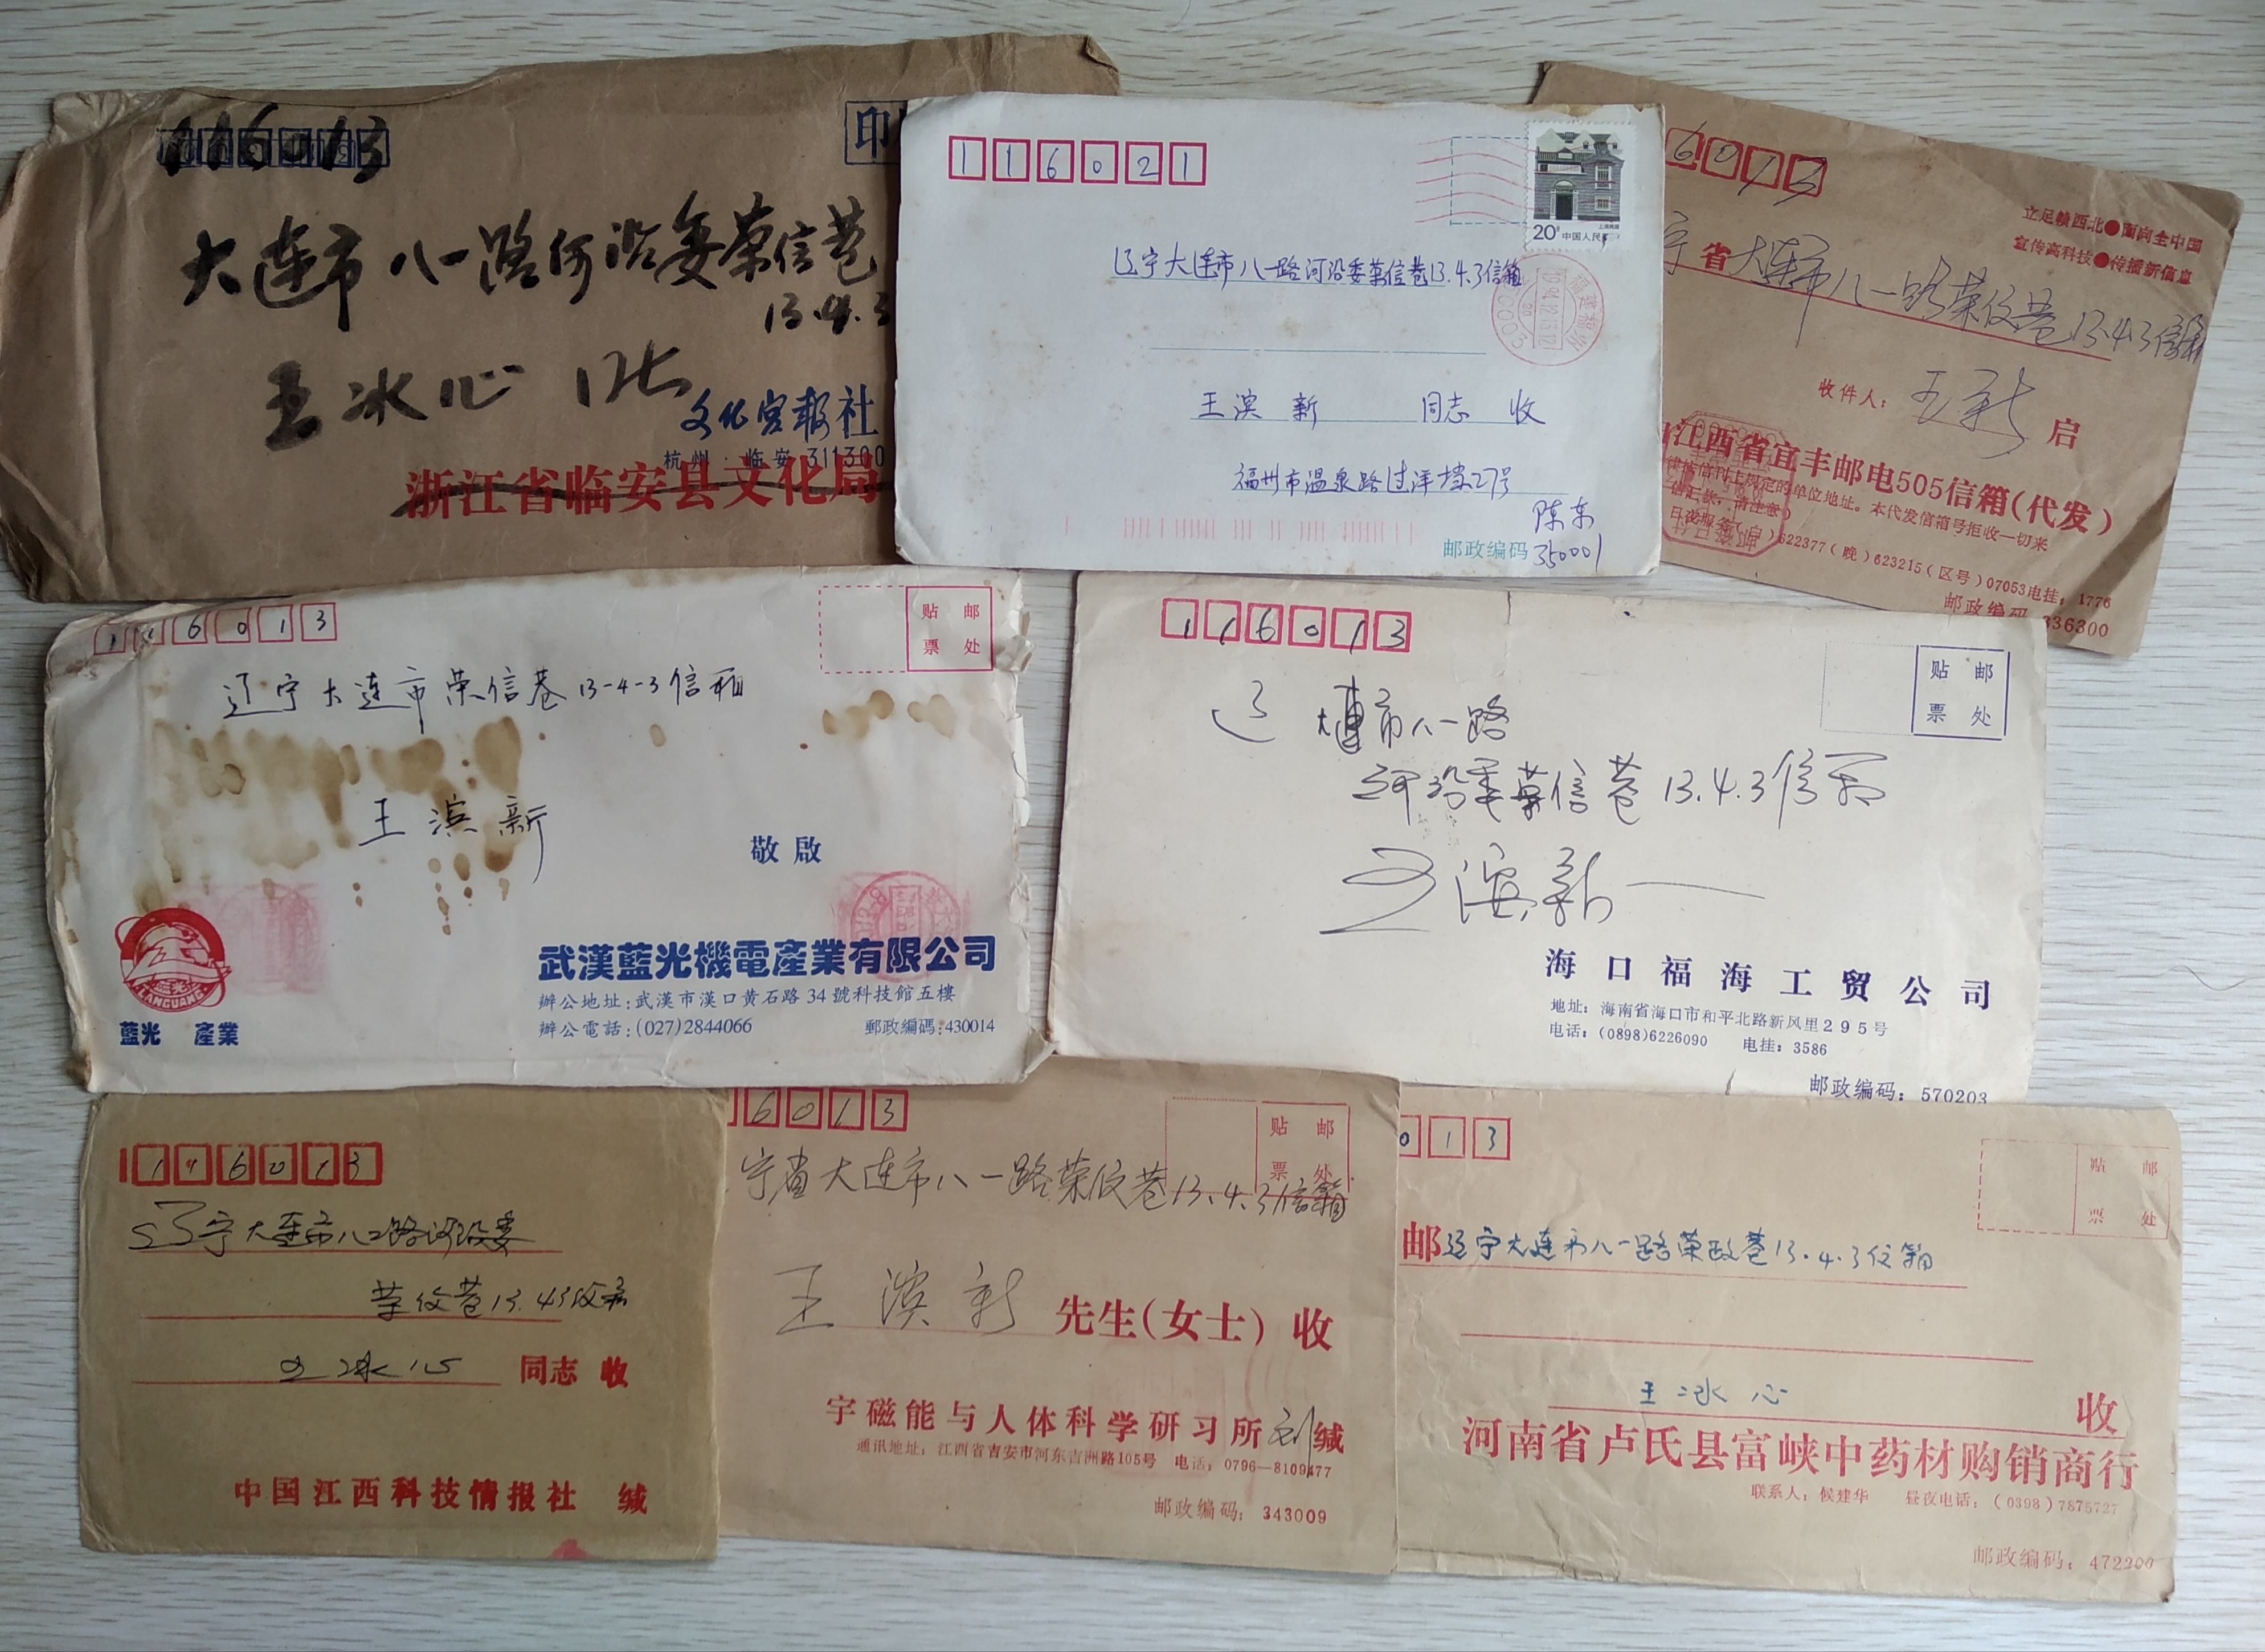 116013
印
大连市八一路河沿委荣信巷
13.4.3
王冰心
文化宫报社
杭州·临安 311300
浙江省临安县文化局
116021
20分 中国人民
辽宁大连市八一路河沿委荣信巷13.4.3信箱
福建福州
王滨新 同志 收
福州市温泉路过洋垱27号
陈东
邮政编码 350001
6013
立足赣西北●面向全中国
宣传高科技●传播新信息
宁省大连市八一路荣仪巷13.4.3信箱
收件人: 王新 启
江西省宜丰邮电505信箱(代发)
单位地址。本代发信箱号拒收一切来
信汇款,请注意)
622377(晚)623215(区号)07053电挂:1776
邮政编码 336300
116013
贴邮
票处
辽宁大连市荣信巷13-4-3信箱
王滨新
敬啟
LANGUANG
藍光 産業
武漢藍光機電產業有限公司
辦公地址:武漢市漢口黄石路34號科技館五樓
辦公電話:(027)2844066 郵政編碼:430014
116013
贴邮
票处
辽 大連市八一路
河沿委荣信巷13.4.3信箱
王滨新
海口福海工贸公司
地址:海南省海口市和平北路新风里295号
电话:(0898)6226090 电挂:3586
邮政编码:570203
116013
辽宁大连市八一路河沿委
荣仪巷13.4.3
王冰心 同志 收
中国江西科技情报社 缄
6013
贴邮
票处
宁省大连市八一路荣仪巷13.4.3信箱
王滨新 先生(女士)收
宇磁能与人体科学研习所 刘缄
通讯地址:江西省吉安市河东吉洲路105号 电话:0796—8109477
邮政编码:343009
013
贴邮
票处
邮 辽宁大连市八一路荣政巷13.4.3信箱
王冰心 收
河南省卢氏县富峡中药材购销商行
联系人:候建华 昼夜电话:(0398)7875727
邮政编码:472200